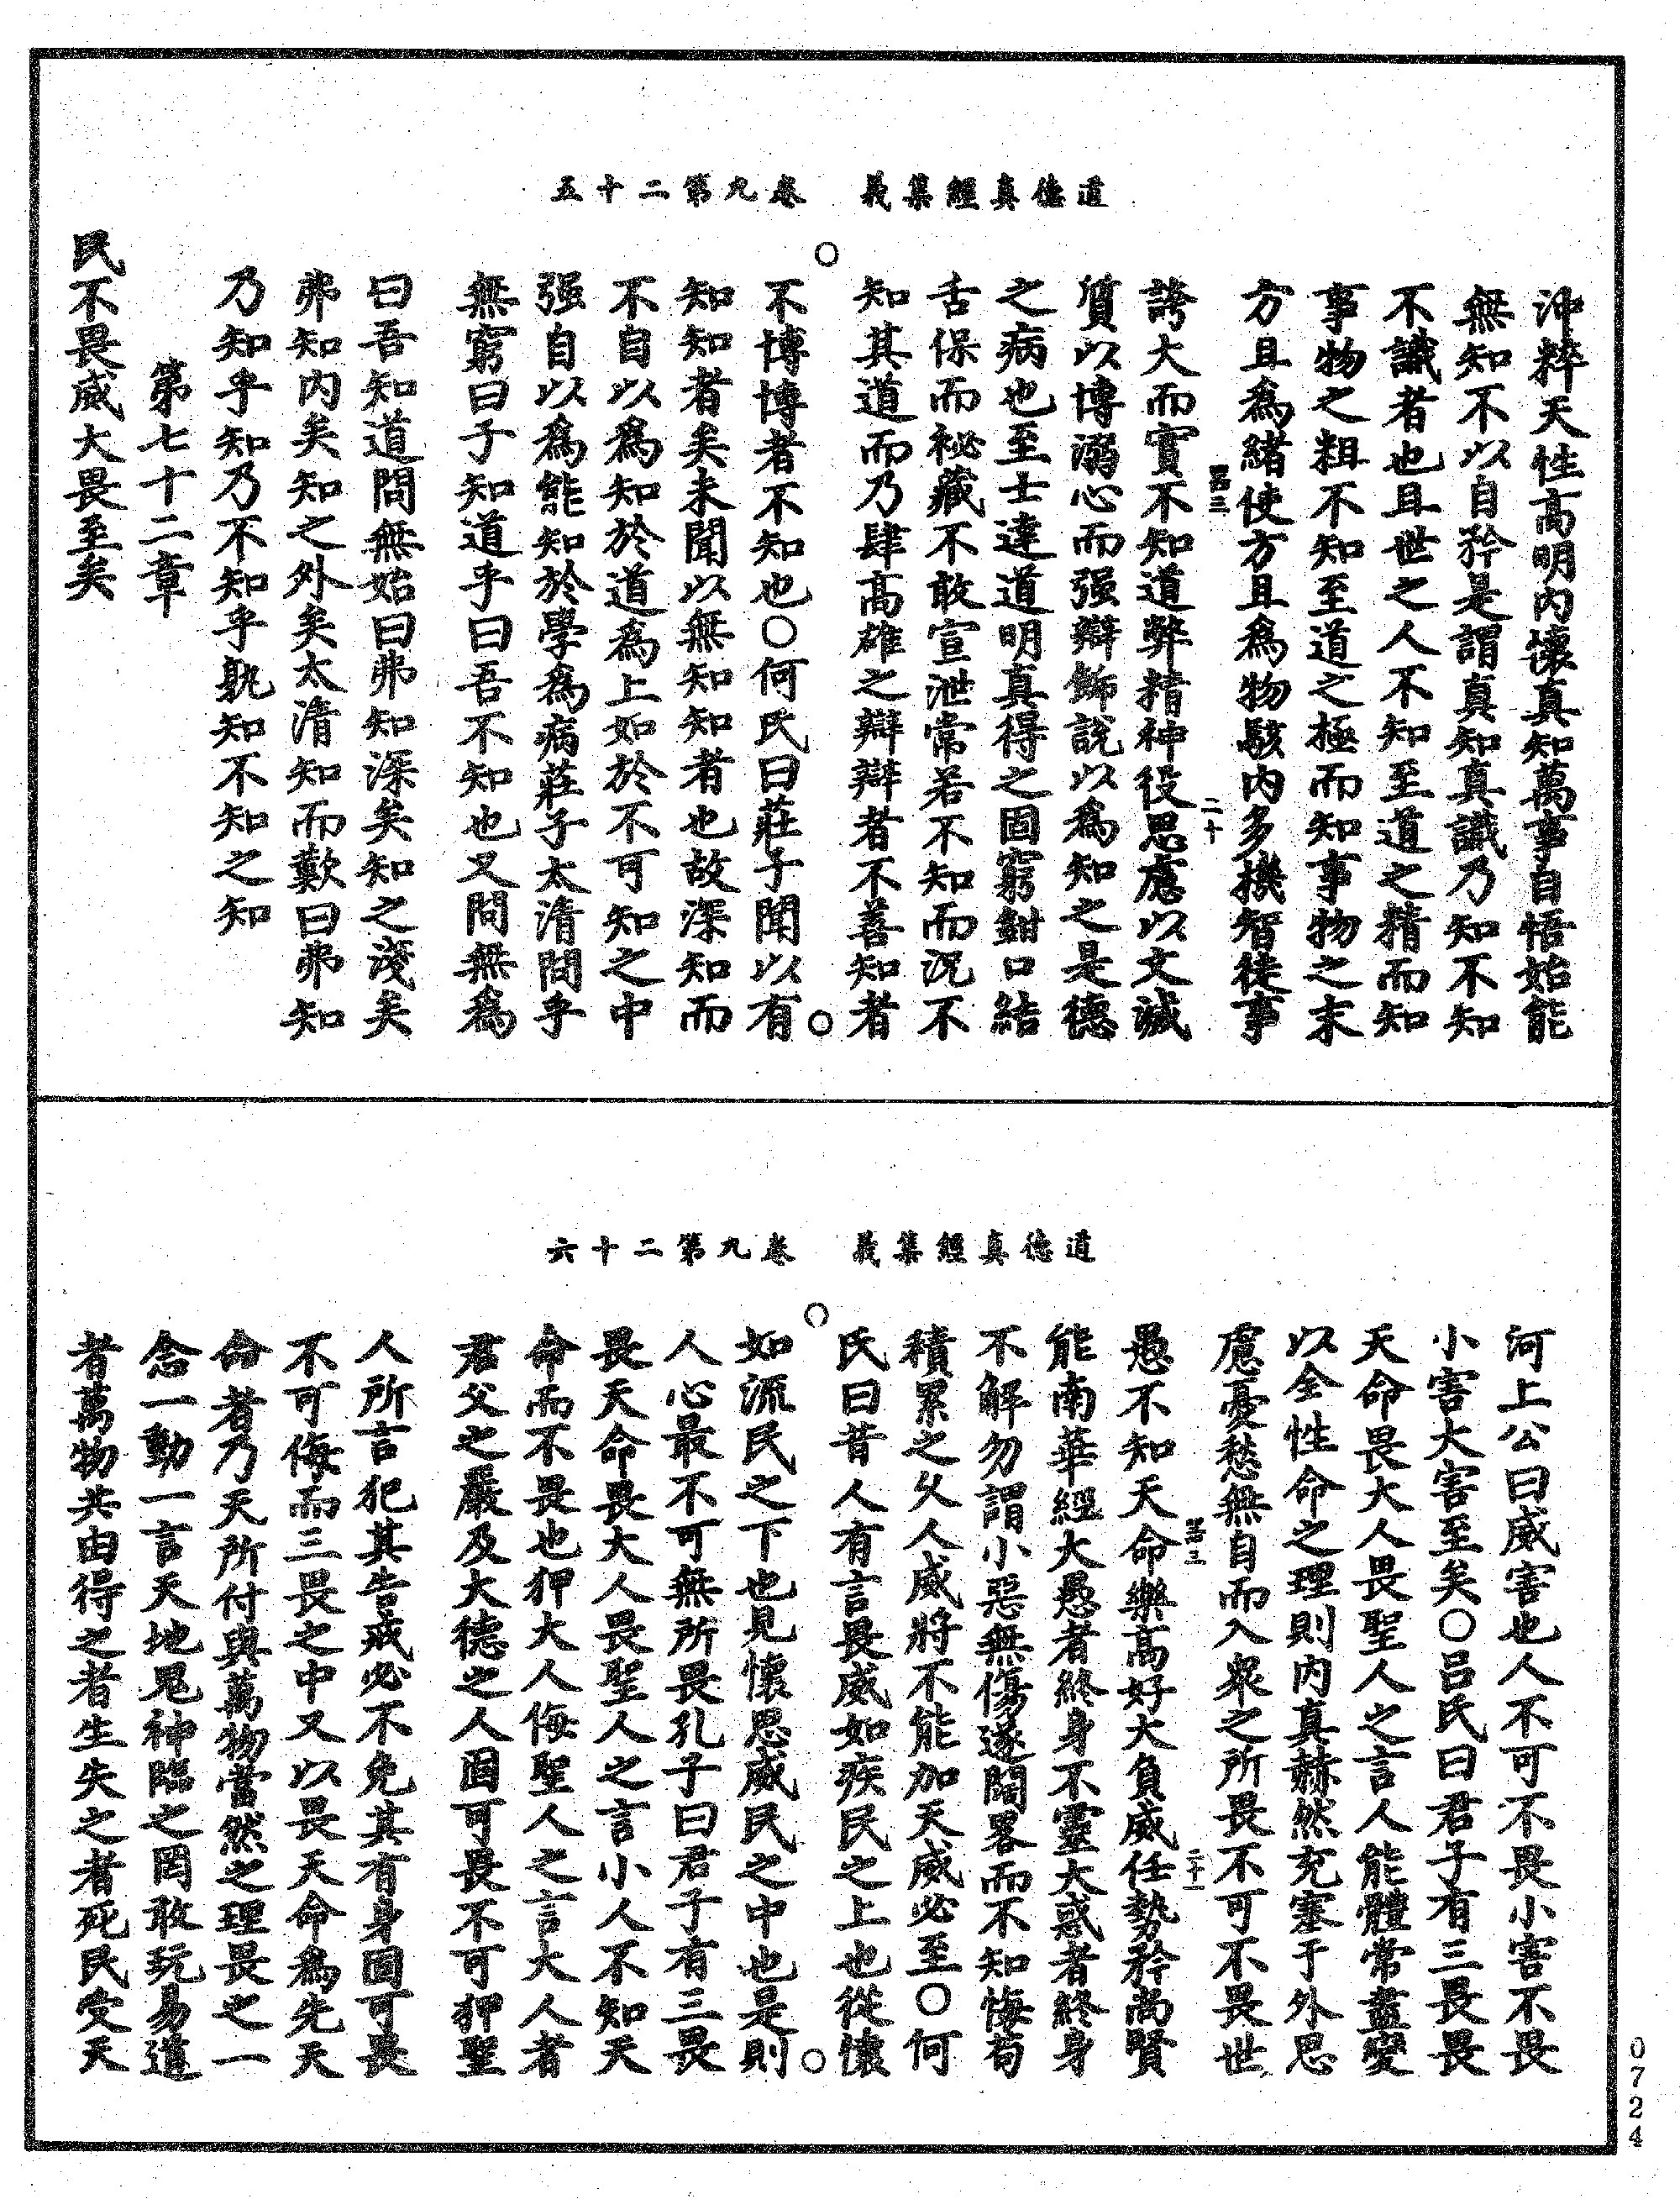 道德真經集義　卷九第二十五
沖粹天性高明內懷真知萬事自悟始能
無知不以自矜是謂真知真識乃知不知
不識者也且世之人不知至道之精而知
事物之粗不知至道之極而知事物之末
方且爲緒使方且爲物駭內多機智徒事
二十
誇大而實不知道弊精神役思慮以文滅
質以博溺心而强辯飾說以爲知之是德
之病也至士達道明真得之固窮鉗口結
舌保而祕藏不敢宣泄常若不知而況不
知其道而乃肆高雄之辯辯者不善知者
不博博者不知也〇何氏曰莊子聞以有
知知者矣未聞以無知知者也故深知而
不自以爲知於道爲上如於不可知之中
强自以爲能知於學爲病莊子太清問乎
無窮曰子知道乎曰吾不知也又問無爲
曰吾知道問無始曰弗知深矣知之淺矣
弗知內矣知之外矣太清知而歎曰弗知
乃知乎知乃不知乎孰知不知之知
第七十二章
民不畏威大畏至矣
道德真經集義　卷九第二十六
河上公曰威害也人不可不畏小害不畏
小害大害至矣〇呂氏曰君子有三畏畏
天命畏大人畏聖人之言人能體常盡變
以全性命之理則內真赫然充塞于外思
慮憂愁無自而入衆之所畏不可不畏世
二十一
愚不知天命樂高好大負威任勢矜尚賢
能南華經大愚者終身不靈大惑者終身
不解勿謂小惡無傷遂闊畧而不知悔苟
積累之久人威將不能加天威必至〇何
氏曰昔人有言畏威如疾民之上也從懷
如流民之下也見懷思威民之中也是則
人心最不可無所畏孔子曰君子有三畏
畏天命畏大人畏聖人之言小人不知天
命而不畏也狎大人侮聖人之言大人者
君父之嚴及大德之人固可畏不可狎聖
人所言犯其告戒必不免其有身固可畏
不可侮而三畏之中又以畏天命爲先天
命者乃天所付與萬物當然之理畏之一
念一動一言天地鬼神臨之罔敢玩易道
者萬物共由得之者生失之者死民受天
0724